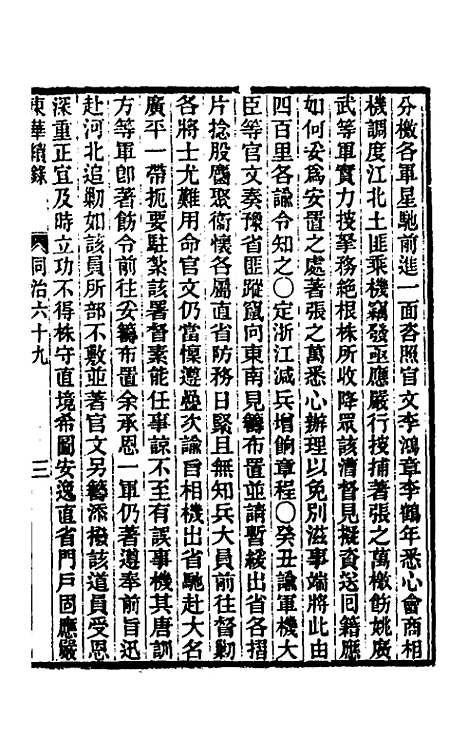 分檄各軍星馳前進一面咨照官文李鴻章李鶴年悉心會商相
機調度江北土匪乘機竊發亟應嚴行按捕著張之萬檄飭姚廣
武等軍實力按拏務絕根株所收降眾該漕督見擬資送回籍應
如何妥為安置之處著張之萬悉心辦理以免別滋事端將此由
四百里各諭令知之〇定浙江減兵增餉章程〇癸丑諭軍機大
臣等官文奏豫省匪蹤竄向東南見籌布置並請暫緩出省各摺
片捻股鴟聚衞懷各屬直省防務日緊且無知兵大員前往督勦
各將士尤難用命官文仍當懍遵疊次諭旨相機出省馳赴大名
廣平一帶扼要駐紮該署督素能任事諒不至有誤事機其唐訓
方等軍卽著飭令前往妥籌布置余承恩一軍仍著遵奉前旨迅
赴河北追勦如該員所部不敷並著官文另籌添撥該道員受恩
深重正宜及時立功不得株守直境希圖安逸直省門戶固應嚴
東華續錄
同治六十九
三